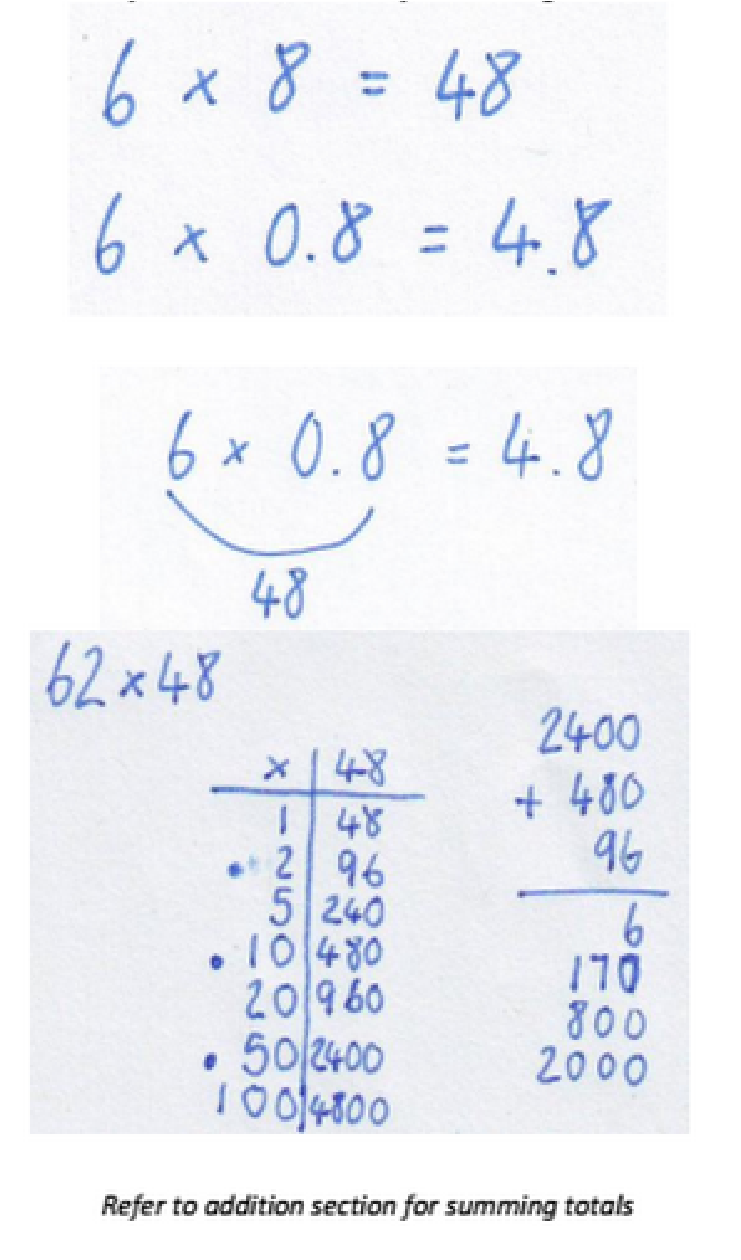 6 × 8 = 48
6 × 0.8 = 4.8
6 × 0.8 = 4.8
48
62 × 48
× | 48
1 | 48
• 2 | 96
5 | 240
• 10 | 480
20 | 960
• 50 | 2400
100 | 4800
2400
+ 480
96
6
170
800
2000
Refer to addition section for summing totals